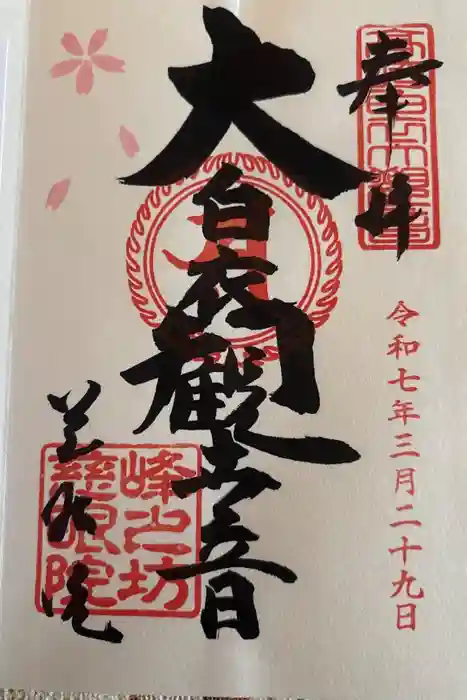 奉拝
令和七年三月二十九日
大白衣観世音
慈眼院
峰之坊
慈眼院